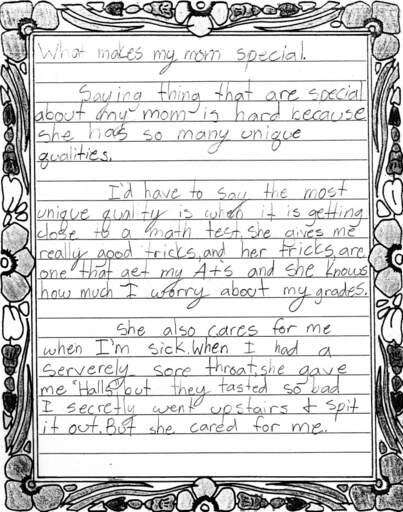 What makes my mom special.
Saying thing that are special
about my mom is hard because
she has so many unique
qualities.
I'd have to say the most
unique qunlty is when it is getting
close to a math test, she gives me
really good tricks, and her tricks, are
one that get my A+s and she knows
how much I worry about my grades.
She also cares for me
when I'm sick. When I had a
serverely sore throat, she gave
me "Halls", but they tasted so bad
I secretly went upstairs & spit
it out. But she cared for me.